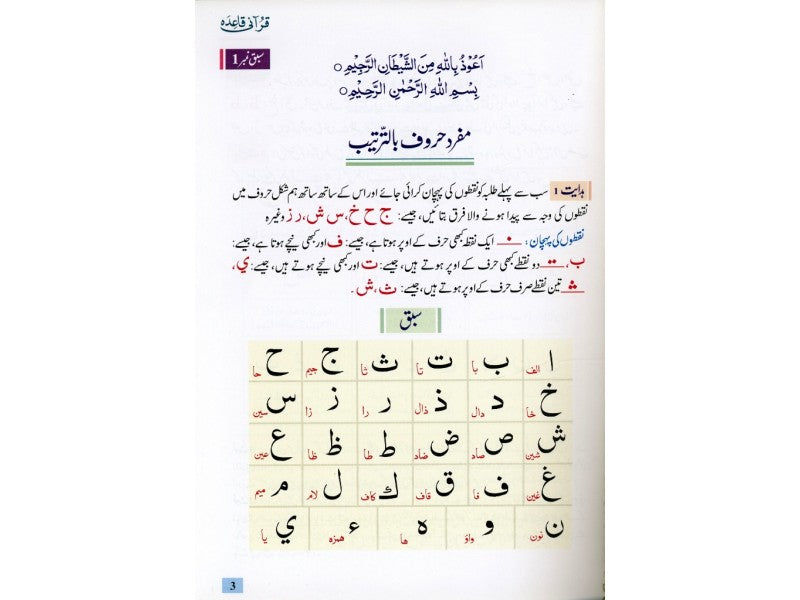 قرآنی قاعدہ
سبق نمبر 1
اَعُوْذُ بِاللّٰهِ مِنَ الشَّيْطَانِ الرَّجِيْمِ ○
بِسْمِ اللّٰهِ الرَّحْمٰنِ الرَّحِيْمِ ○
مفرد حروف بالترتیب
ہدایت 1 سب سے پہلے طلبہ کو نقطوں کی پہچان کرائی جائے اور اس کے ساتھ ساتھ ہم شکل حروف میں
نقطوں کی وجہ سے پیدا ہونے والا فرق بتائیں، جیسے: ج ح خ، س ش، ر ز وغیرہ
نقطوں کی پہچان: ایک نقطہ کبھی حرف کے اوپر ہوتا ہے، جیسے: ف اور کبھی نیچے ہوتا ہے، جیسے:
ب، دو نقطے کبھی حرف کے اوپر ہوتے ہیں، جیسے: ت اور کبھی نیچے ہوتے ہیں، جیسے: ي،
تین نقطے صرف حرف کے اوپر ہوتے ہیں، جیسے: ث، ش ۔
سبق
ا الف ب با ت تا ث ثا ج جیم ح حا
خ خا د دال ذ ذال ر را ز زا س سین
ش شین ص صاد ض ضاد ط طا ظ ظا ع عین
غ غین ف فا ق قاف ك کاف ل لام م میم
ن نون و واؤ ه ھا ء ھمزہ ي یا
3